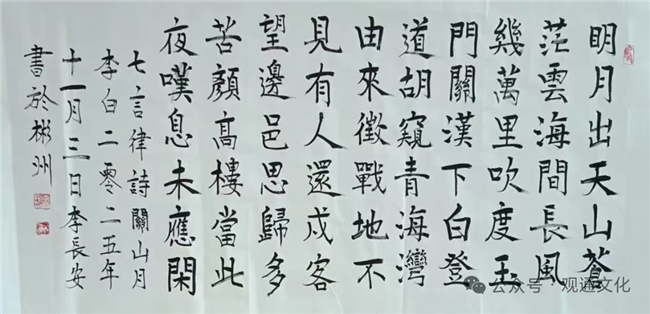 明月出天山蒼
茫雲海間長風
幾萬里吹度玉
門關漢下白登
道胡窺青海灣
由來徵戰地不
見有人還戍客
望邊邑思歸多
苦顏高樓當此
夜嘆息未應閑
七言律詩關山月
李白二零二五年
十一月三日李長安
書於彬州
公众号 · 观通文化